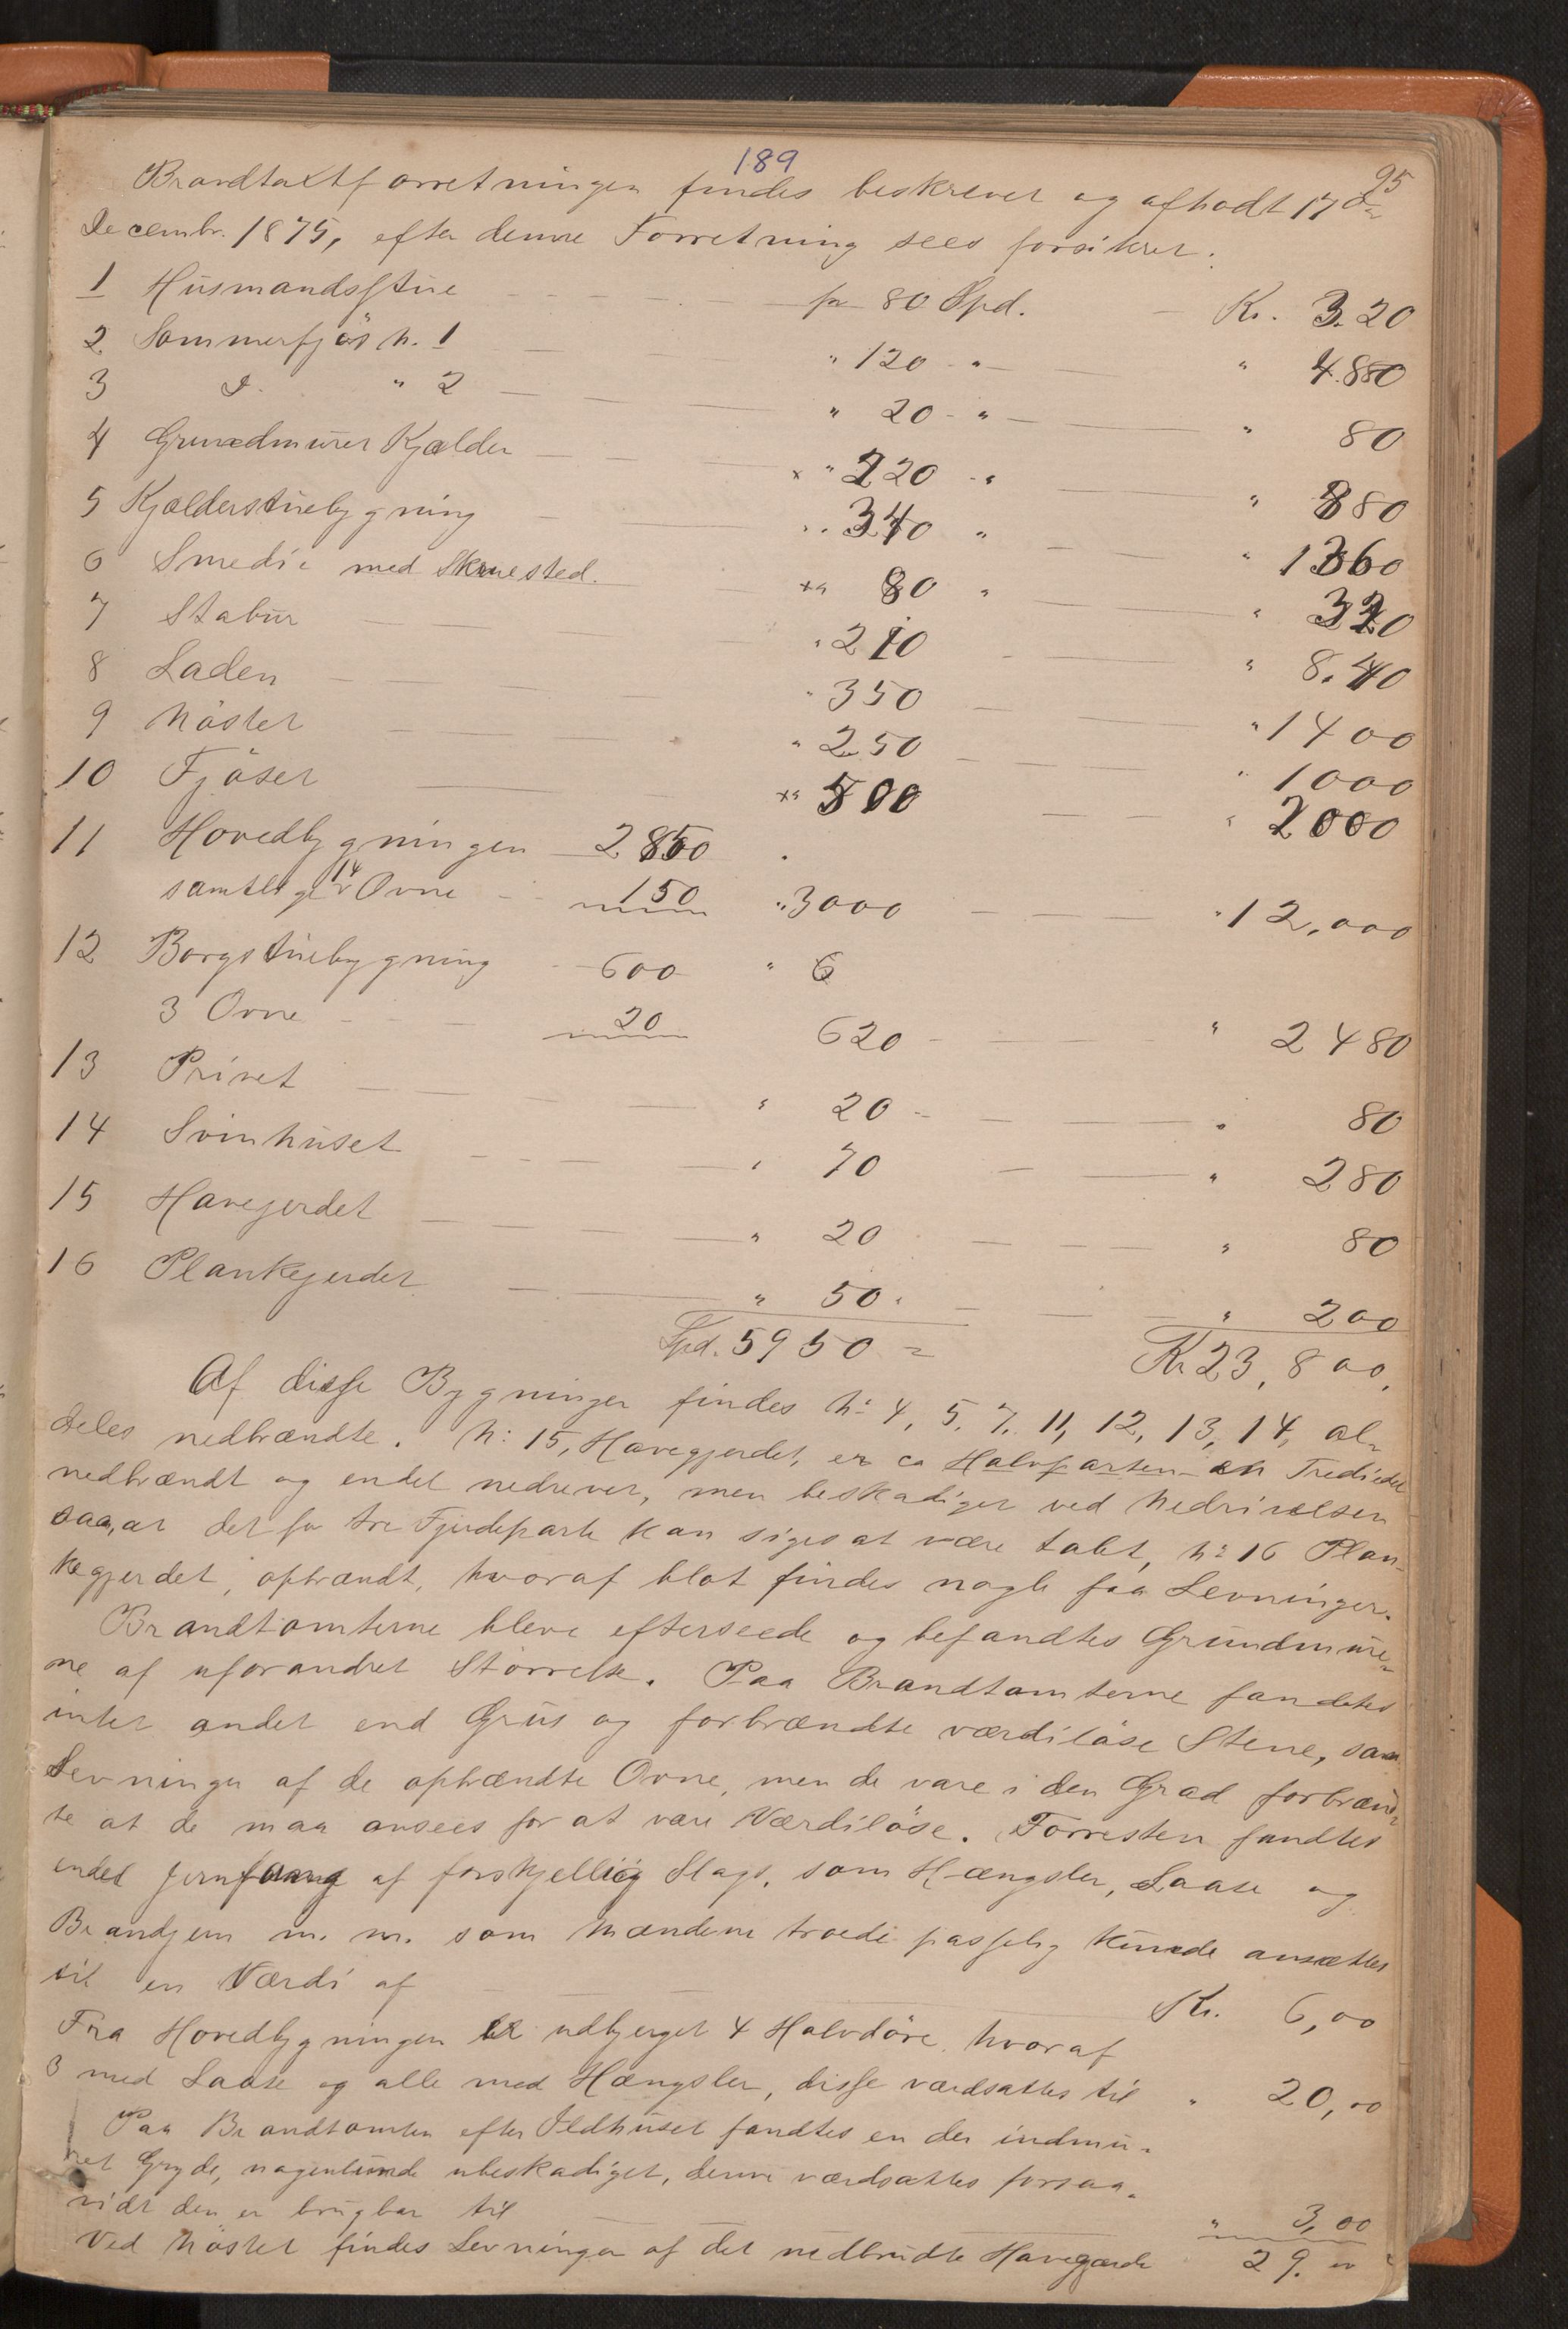 189
95
Brandtaxtforretningen findes beskrevet og afholdt 17de
Decembr. 1875, efter denne Forretning sees forsikret:
1 Husmandsstue pr 80 Spd. Kr. 3.20
2 Sommerfjös N. 1 " 120 " " 480
3 D. " 2 " 20 " " 80
4 Grundmuret Kjælder " 220 " " 880
5 Kjælderstuebygning " 340 " " 1360
6 Smedie med Skruested. " 80 " " 320
7 Stabur " 210 " 8.40
8 Laden " 350 " 1400
9 Nöstet " 250 " 1000
10 Fjöset " 500 " 2000
11 Hovedbygningen 2850
samtlige 14 Ovne 150 " 3000 " 12,000
12 Borgstuebygning 600 " 6
3 Ovne 20 620 " 2480
13 Privet " 20 " 80
14 Svinhuset " 70 " 280
15 Havegjerdet " 20 " 80
16 Plankegjerdet " 50 " 200
Spd. 5950 = Kr 23,800,
Af disse Bygninger findes N: 4, 5, 7, 11, 12, 13, 14, al-
deles nedbrændte. N: 15, Havegjerdet, er ca Halvparten en Trediedel
nedbrændt og endel nedrevet, men beskadiget ved Nedrivelsen
saa, at det for tre Fjerdeparte kan siges at være tabt, N: 16 Plan-
kegjerdet, opbrændt, hvoraf blot findes nogle faa Levninger.
Brandtomterne bleve efterseede og befandtes Grundmure-
ne af uforandret Störrelse. Paa Brandtomterne fandtes
intet andet end Grus og forbrændte værdilöse Stene, samt
Levninger af de opbrændte Ovne, men de vare i den Grad forbrænd-
te at de maa ansees for at være Værdilöse. Forresten fandtes
endel Jernfang af forskjellig Slags, som Hængsler, Laase og
Brandjern m. m. som Mændene troede passelig kunde ansættes
til en Værdi af Kr. 6,00
Fra Hovedbygningen er udbjerget 4 Halvdöre, hvoraf
3 med Laase og alle med Hængsler, disse værdsattes til " 20,00
Paa Brandtomten efter Ildhuset fandtes en der indmu-
ret Gryde, nogenlunde ubeskadiget, denne værdsattes forsaa-
vidt den er brugbar til " 3,00
Ved Nöstet findes Levninger af det nedbrudte Havegjærde 29.00